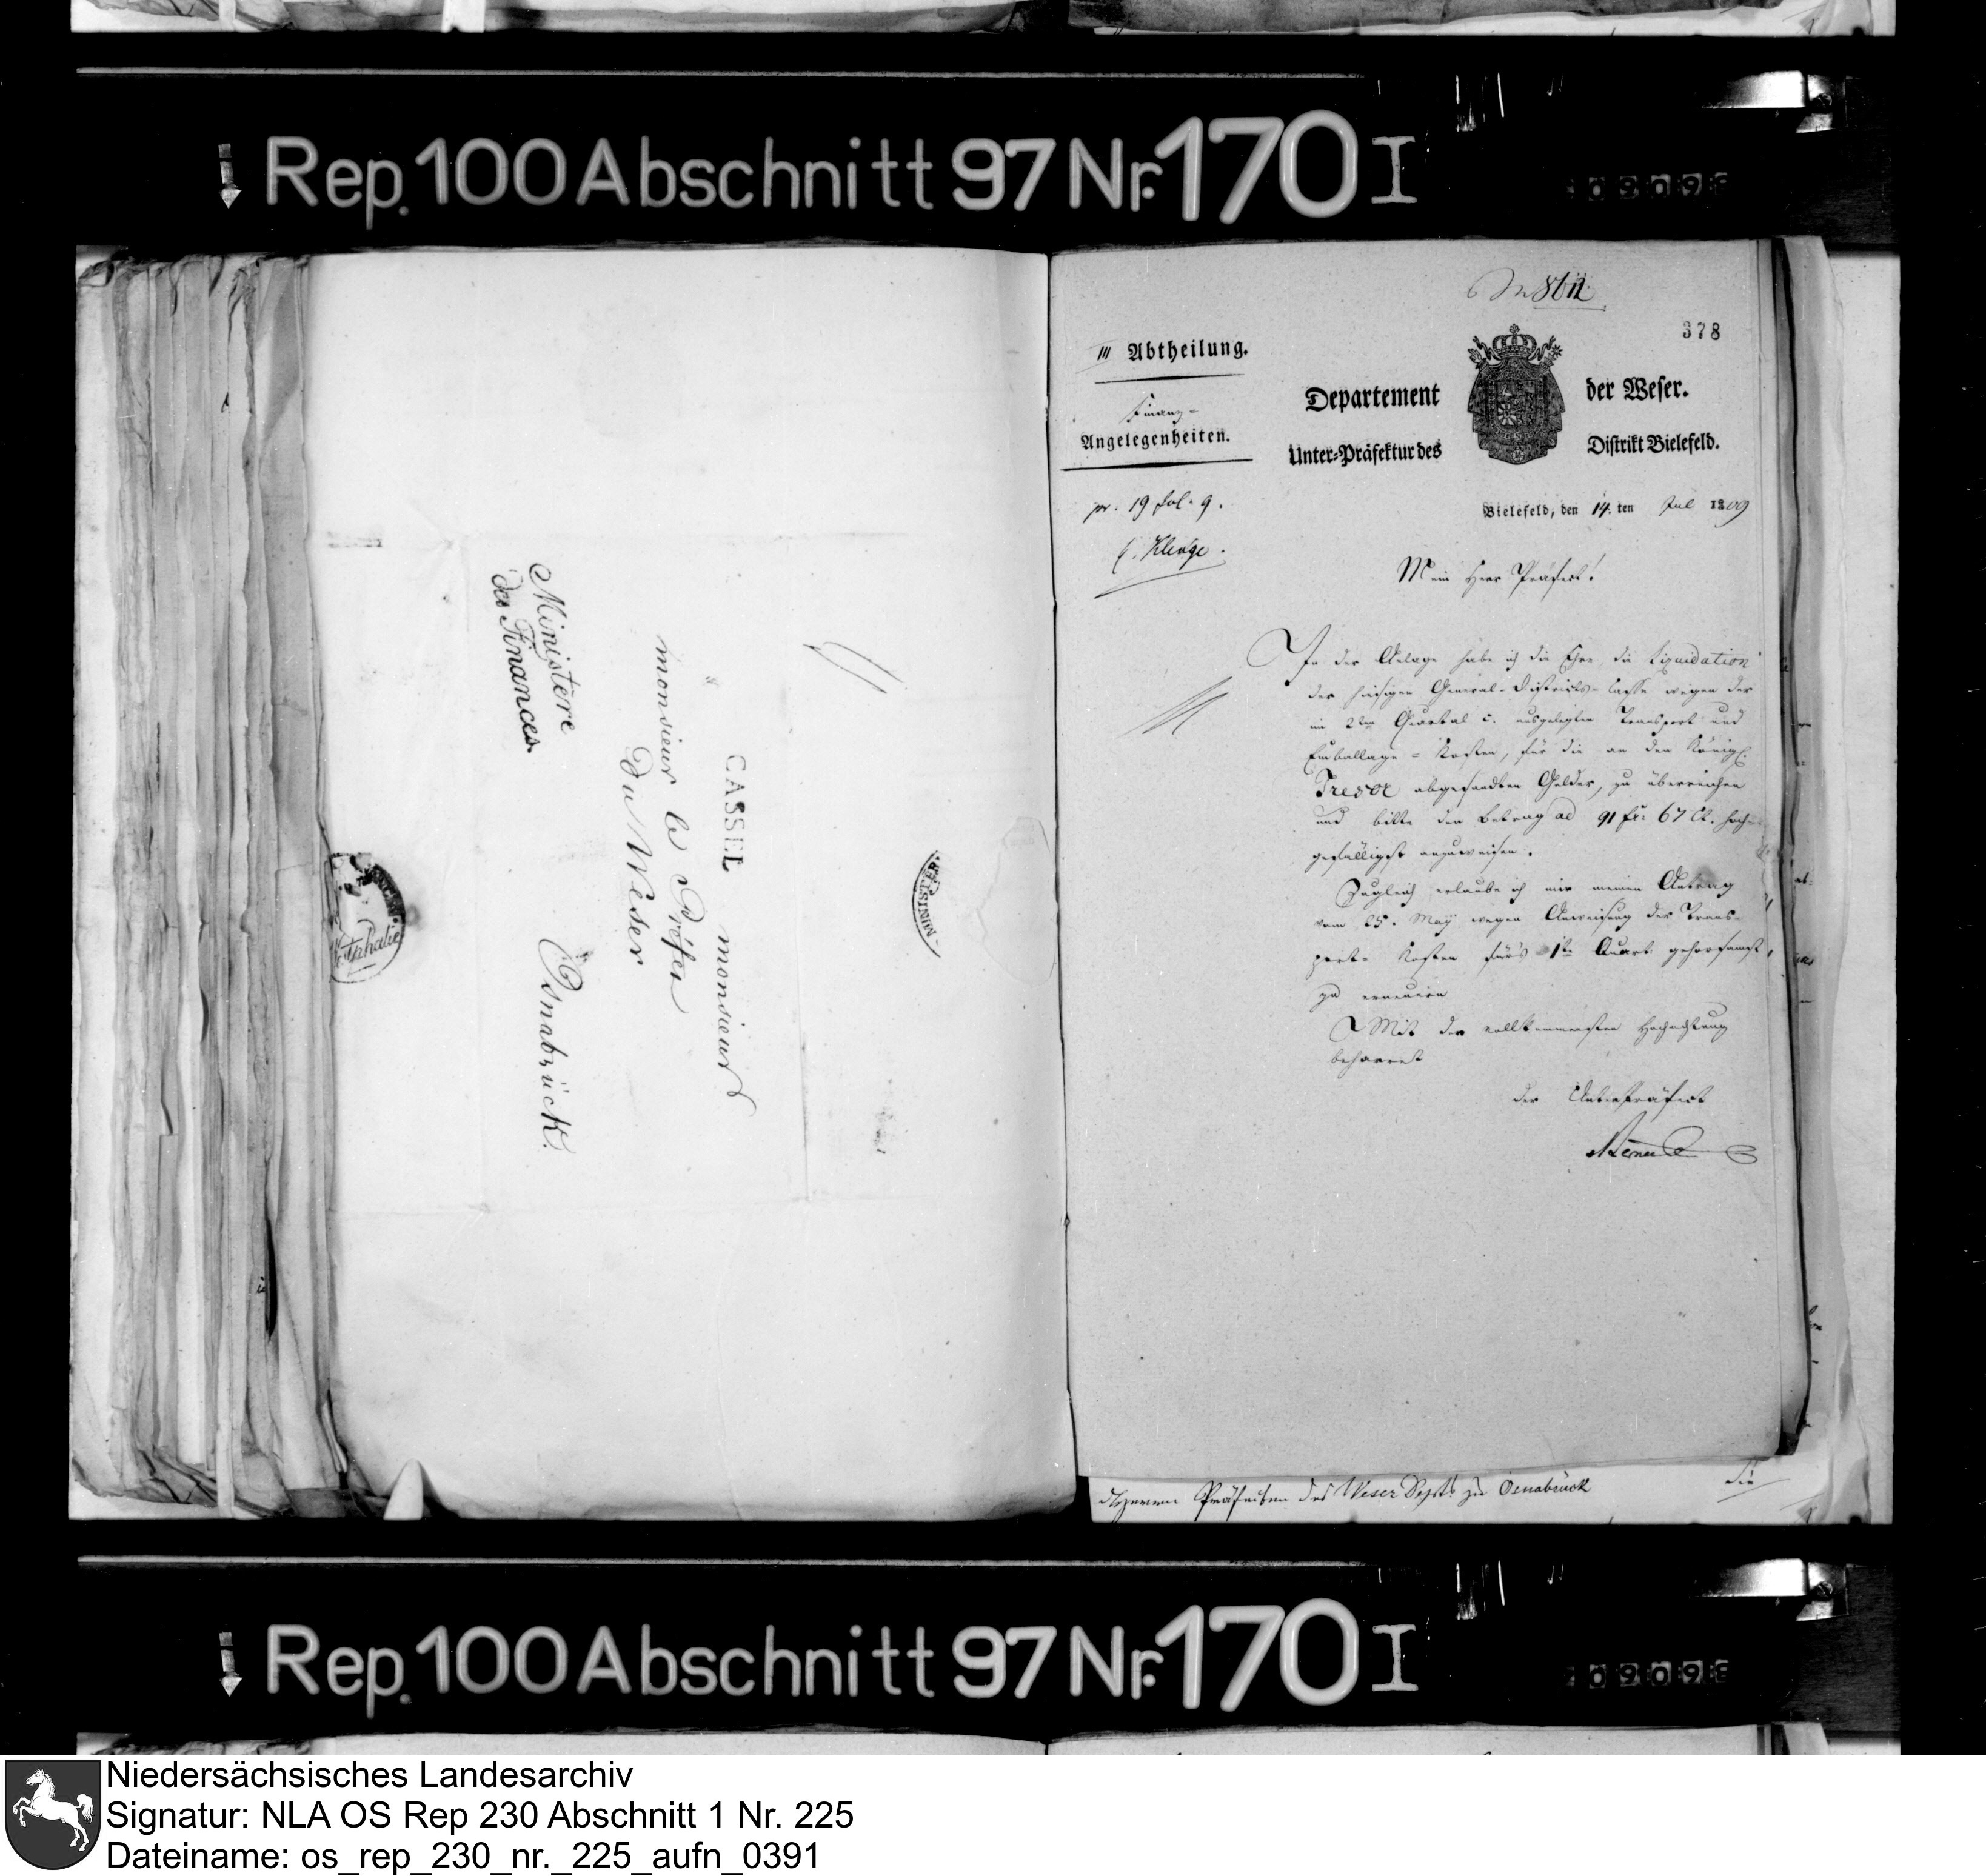 Rep. 100 Abschnitt 97 Nr. 170 I
Ministère
des Finances.
CASSEL
monsieur
monsieur le Préfet
Du Weser
Osnabrück.
MINISTER
Westphalie
378
III Abtheilung.
Finanz-
Angelegenheiten.
Departement der Weser.
Unter-Präfektur des Distrikt Bielefeld.
pr. 19 Jul. 9.
Klenge.
Bielefeld, den 14. ten Jul 1809
Mein Herr Präfect!
In der Anlage habe ich die Ehre, die Liquidation
der hiesigen General-Districts-Casse wegen der
im 2ten Quartal c. ausgelegten Transport und
Emballage-Kosten, für die an den Königl.
Tresor abgesandten Gelder, zu überreichen
und bitte den Betrag ad 91 fr: 67 Ct. hoch-
gefälligst anzuweisen.
Zugleich erlaube ich mir meinen Antrag
vom 25. May wegen Anweisung der Trans-
port-Kosten für's 1te Quart. gehorsamst
zu erneuern
Mit der vollkommensten Hochachtung
beharret
der Unterpräfect
Herrn Präfecten des Weser Depts zu Osnabrück
die
Rep. 100 Abschnitt 97 Nr. 170 I
Niedersächsisches Landesarchiv
Signatur: NLA OS Rep 230 Abschnitt 1 Nr. 225
Dateiname: os_rep_230_nr._225_aufn_0391